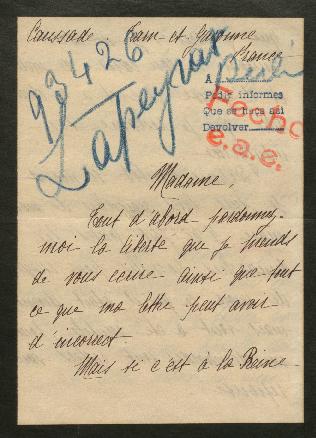 Caussade Tarn-et-Garonne
France
93426
Lapeyrat
A Berlin
Pedir informes
Que se haga así
Devolver
Fecho
e.a.e.
Madame,
Tout d'abord pardonnez-
moi la liberté que je prends
de vous écrire ainsi que tout
ce que ma lettre peut avoir
d'incorrect.
Mais si c'est à la Reine